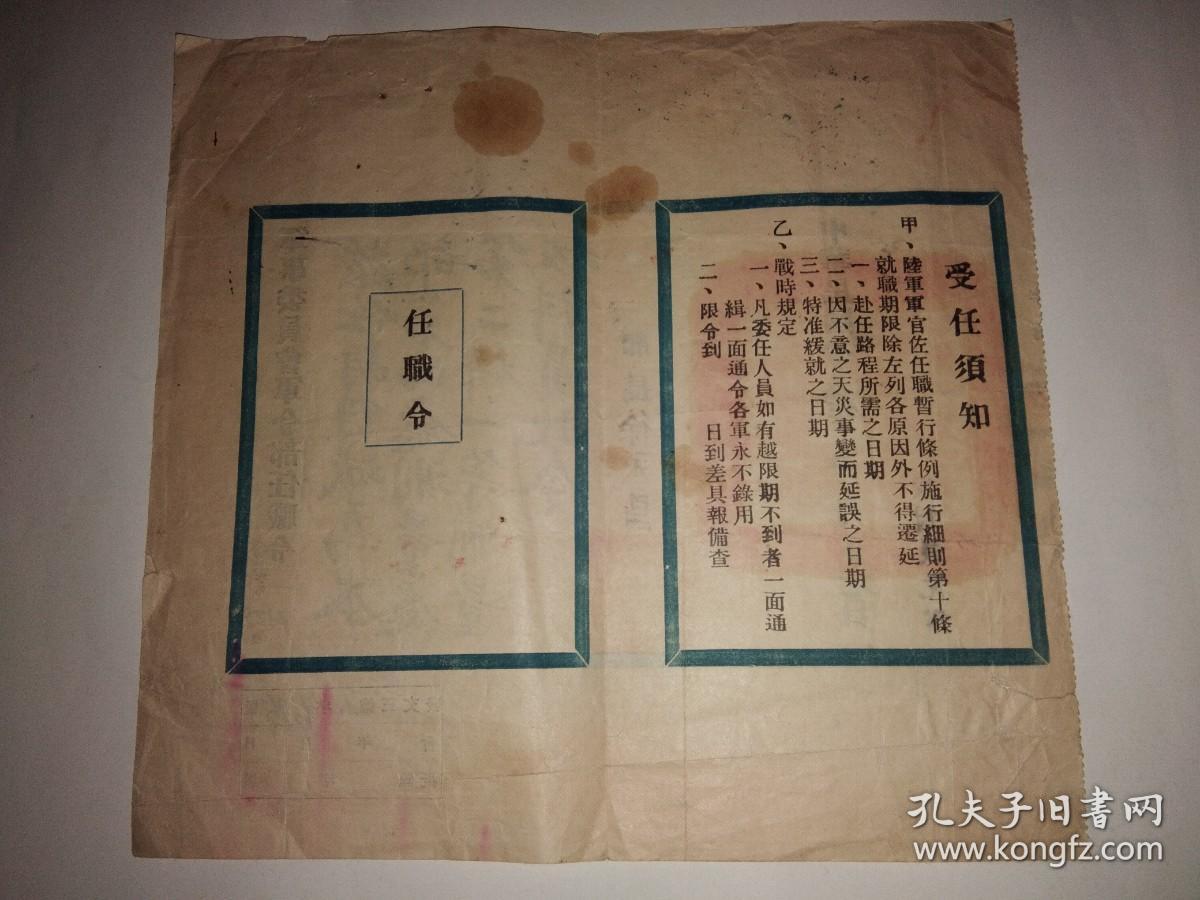 受任須知
甲、陸軍軍官佐任職暫行條例施行細則第十條
就職期限除左列各原因外不得遷延
一、赴任路程所需之日期
二、因不意之天災事變而延誤之日期
三、特准緩就之日期
乙、戰時規定
一、凡委任人員如有越限期不到者一面通
緝一面通令各軍永不錄用
二、限令到　　日到差具報備查
任職令
孔夫子旧书网
www.kongfz.com